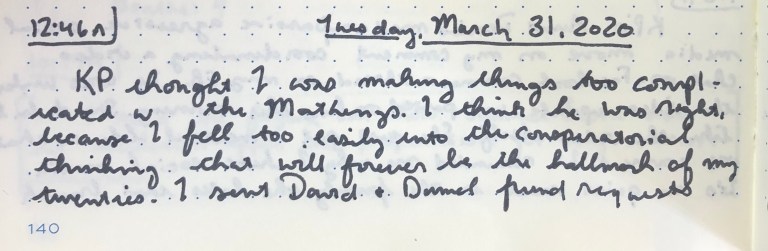 12:46A Tuesday, March 31, 2020
KP thought I was making things too compl-
icated w the Mathengs. I think he was right,
because I fell too easily into the conspiratorial
thinking that will forever be the hallmark of my
twenties. I sent David + Daniel friend requests
140